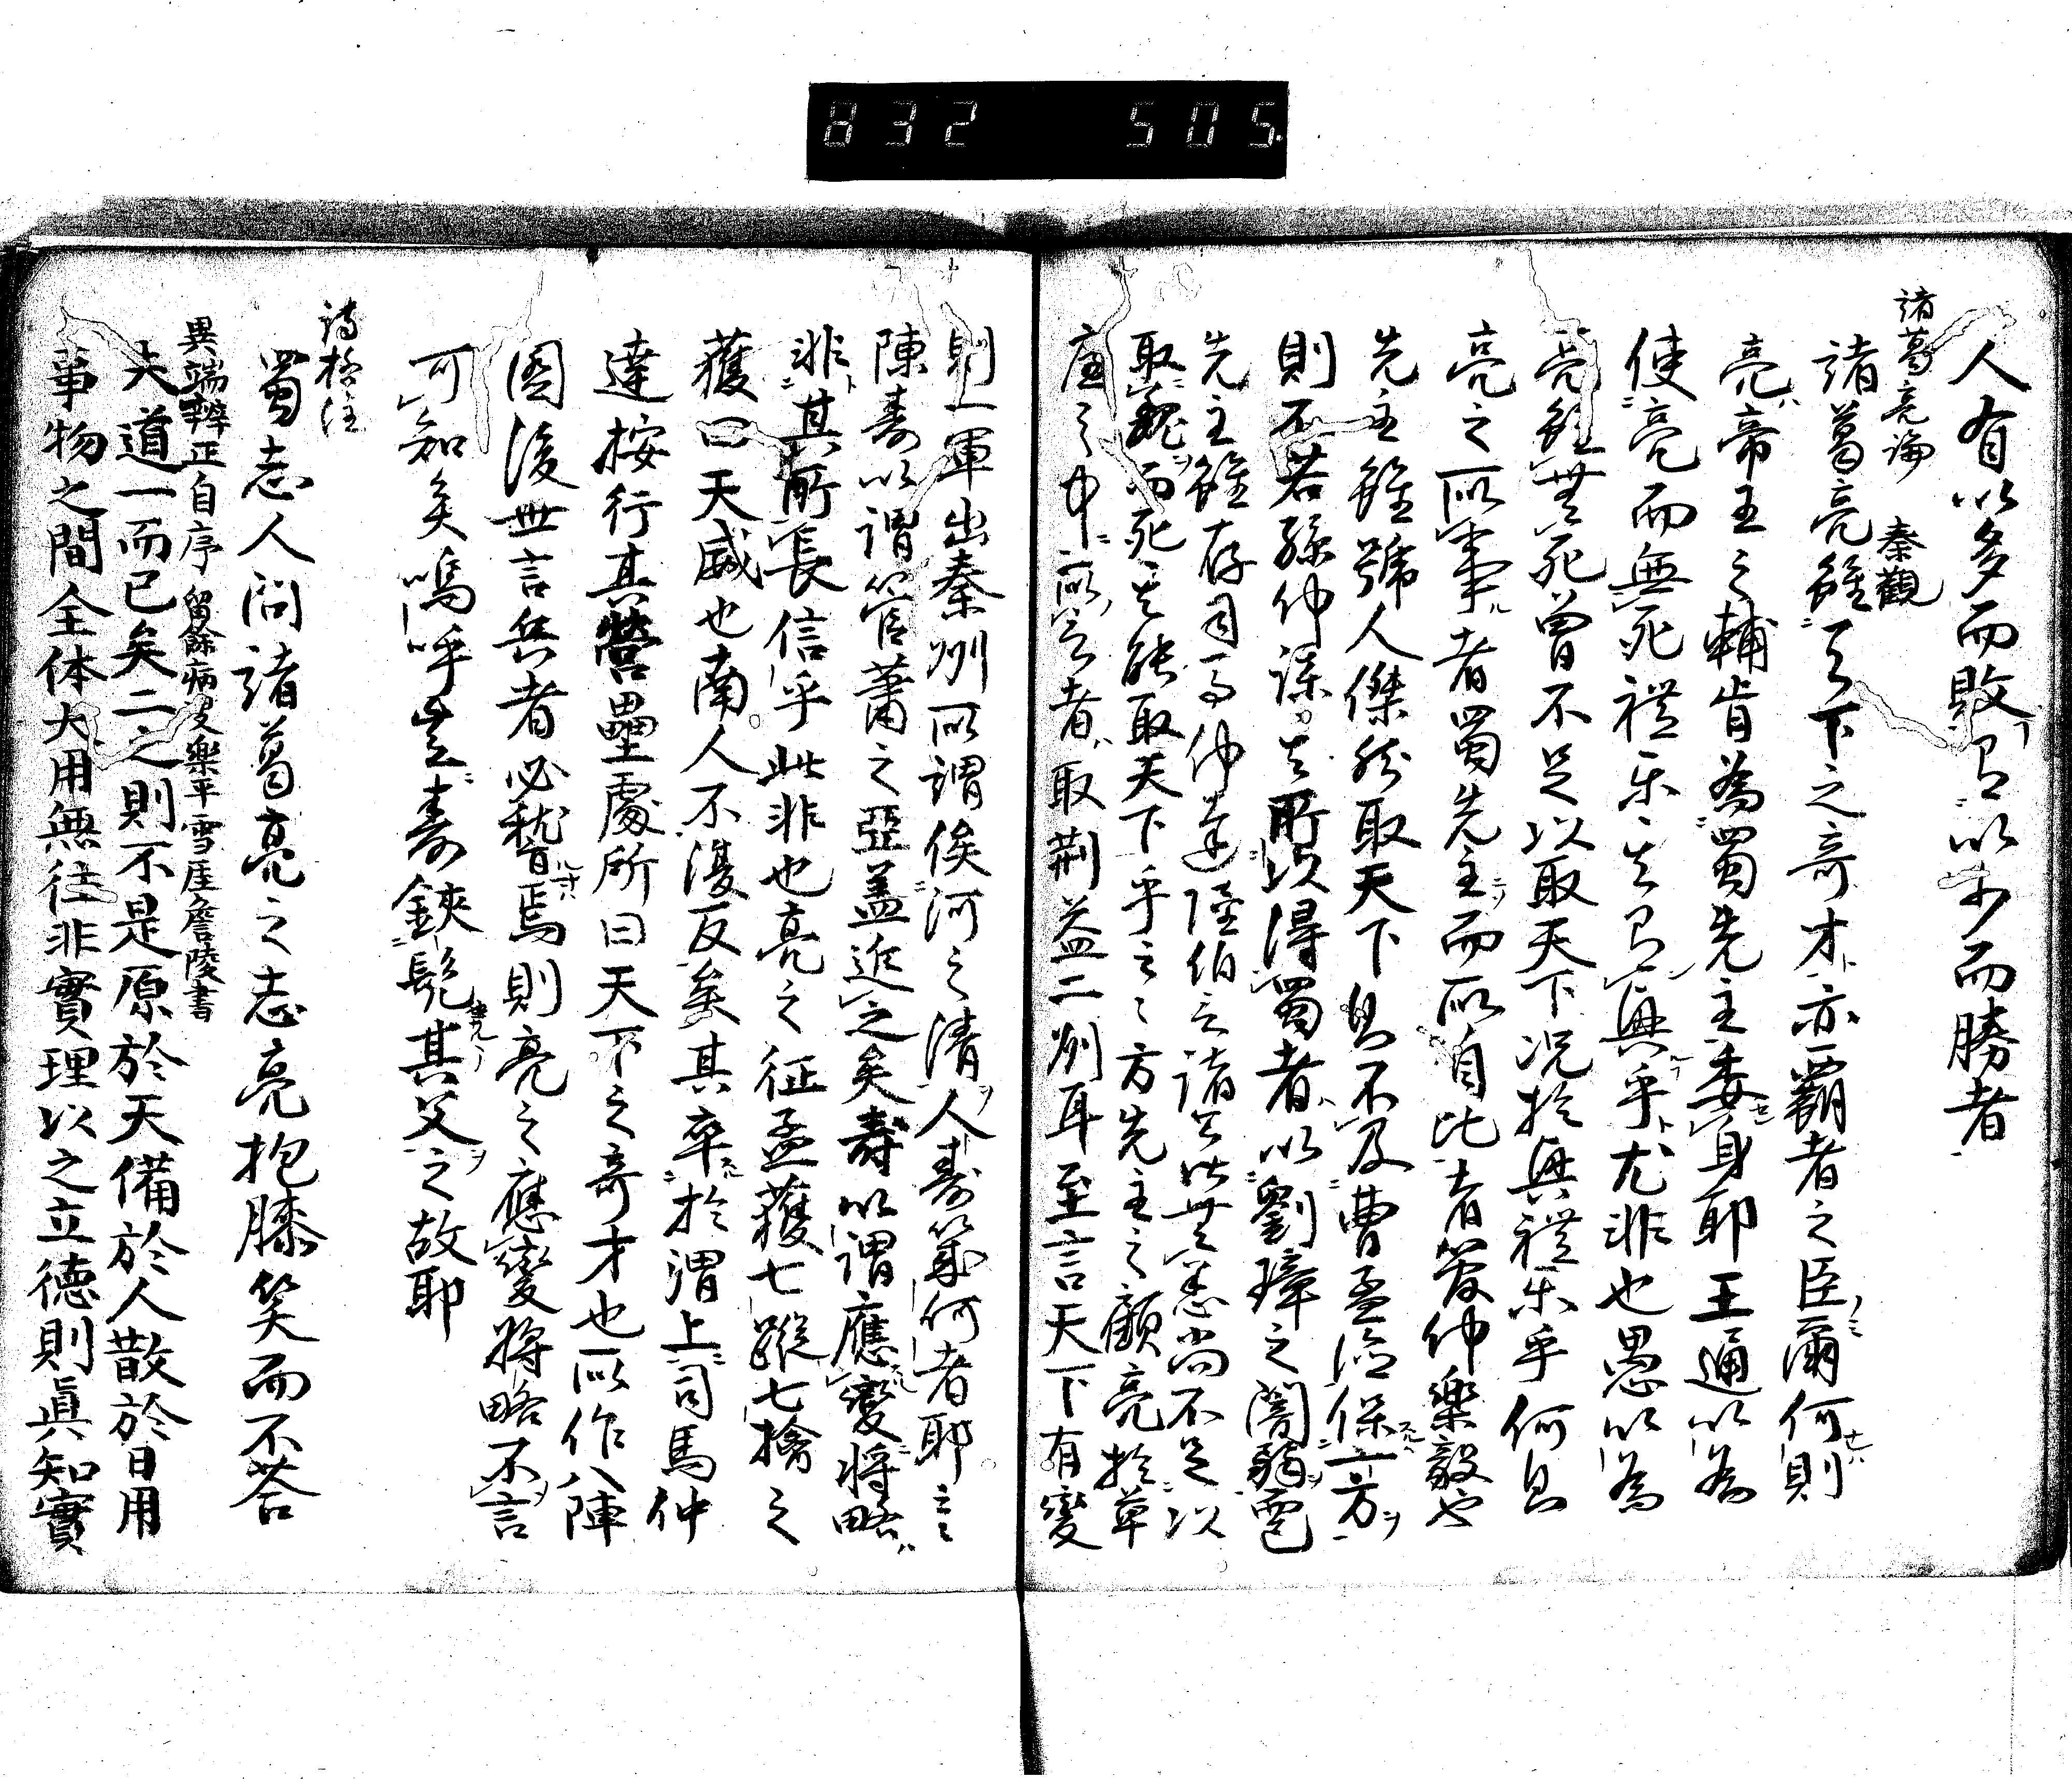 832 505
人有以多而敗有以少而勝者
諸葛亮論 秦觀
諸葛亮雖天下之奇才亦覇者之臣爾何則
亮帝王之輔肯為蜀先主委身耶王通以為
使亮而無死礼乐其有興乎尤非也愚以為
亮雖無死曽不足以取天下况於興礼乐乎何則
亮之所事者蜀先主而所自比者管仲樂毅也
先主雖號人傑然取天下則不及曹孟德保一方
則不若孫仲謀其所以得蜀者以劉璋之闇弱
先主雖存司馬仲達陸伯言諸公皆無恙尚不足以
取魏而死其能取天下乎方先主之顧亮於草
廬之中所言者取荆益二州耳至言天下有變
則一軍出秦州所謂俟河之清人壽幾何者耶
陳寿以謂管蕭之亞盖近之矣寿以謂應變将略
非其所長信乎此非也亮之征孟獲七縱七擒之
獲曰天威也南人不復反矣其卒於渭上司馬仲
達按行其營壘處所曰天下之奇才也所作八陣
圖後世言兵者必稽焉則亮之應變将略不言
可知矣嗚呼豈寿鋏髡其父之故耶
詩格注
蜀志人问諸葛亮之志亮抱膝笑而不荅
異端辨正自序 留餘病叟樂平雪厓詹陵書
夫道一而已矣二之則不是原於天備於人散於日用
事物之間全体大用無往非實理以之立德則眞知實